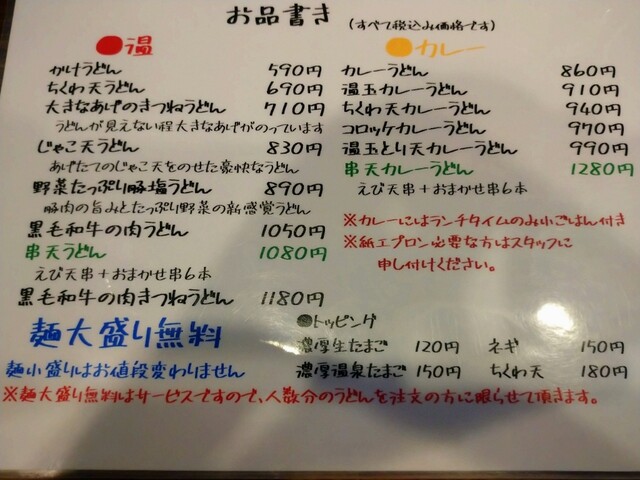 お品書き (すべて税込み価格です)
●温
かけうどん 590円
ちくわ天うどん 690円
大きなあげのきつねうどん 710円
うどんが見えない程大きなあげがのっています
じゃこ天うどん 830円
あげたてのじゃこ天をのせた豪快なうどん
野菜たっぷり豚塩うどん 890円
豚肉の旨みとたっぷり野菜の新感覚うどん
黒毛和牛の肉うどん 1050円
串天うどん 1080円
えび天串+おまかせ串6本
黒毛和牛の肉きつねうどん 1180円
麺大盛り無料
麺小盛りはお値段変わりません
●カレー
カレーうどん 860円
温玉カレーうどん 910円
ちくわ天カレーうどん 940円
コロッケカレーうどん 970円
温玉とり天カレーうどん 990円
串天カレーうどん 1280円
えび天串+おまかせ串6本
※カレーにはランチタイムのみ小ごはん付き
※紙エプロン必要な方はスタッフに
申し付けください。
●トッピング
濃厚生たまご 120円 ネギ 150円
濃厚温泉たまご 150円 ちくわ天 180円
※麺大盛り無料はサービスですので、人数分のうどんを注文の方に限らせて頂きます。